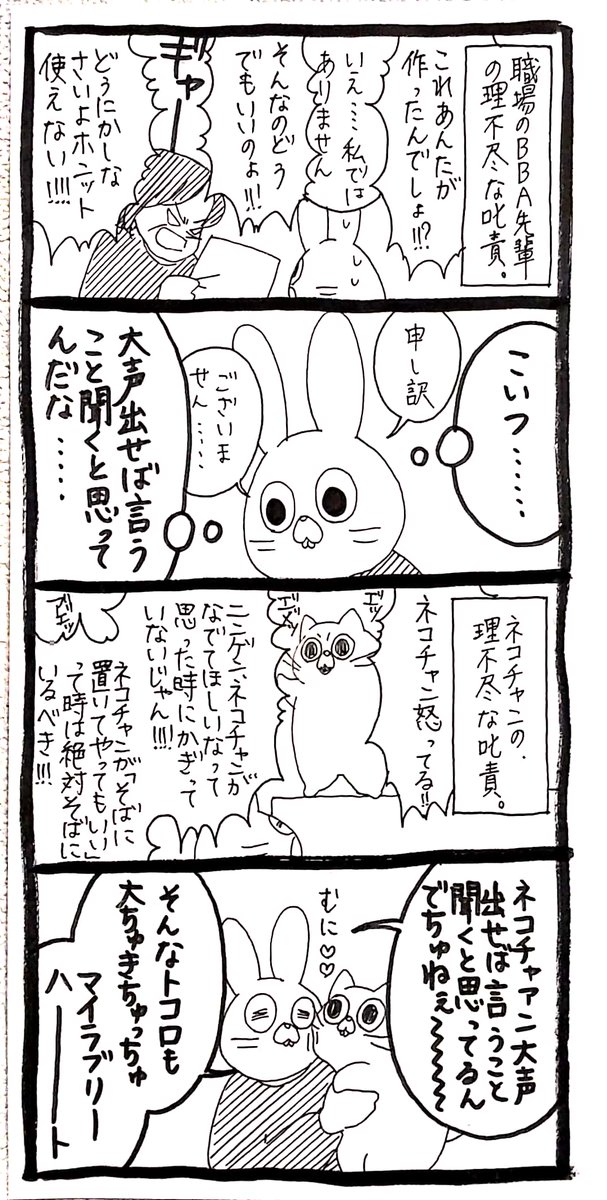 職場のBBA先輩
の理不尽な叱責。
これあんたが
作ったんでしょ!!?
いえ…私では
ありません
そんなのどう
でもいいのよ!!!
ギャー
どうにかしな
さいよホンット
使えない!!!!
こいつ……
申し訳
ございま
せん……
大声出せば言う
こと聞くと思って
んだな……
ネコチャンの
理不尽な叱責。
ネコチャン怒ってる!!
ニンゲン、ネコチャンが
なでてほしいなって
思った時にかぎって
いないじゃん!!!!
ネコチャンが「そばに
置いてやってもいい」
って時は絶対そばに
いるべき!!!
ネコチャァン大声
出せば言うこと
聞くと思ってるん
でちゅねぇ～～～～
むに♡♡
そんなトコロも
大ちゅきちゅっちゅ
マイラブリー
ハーーート